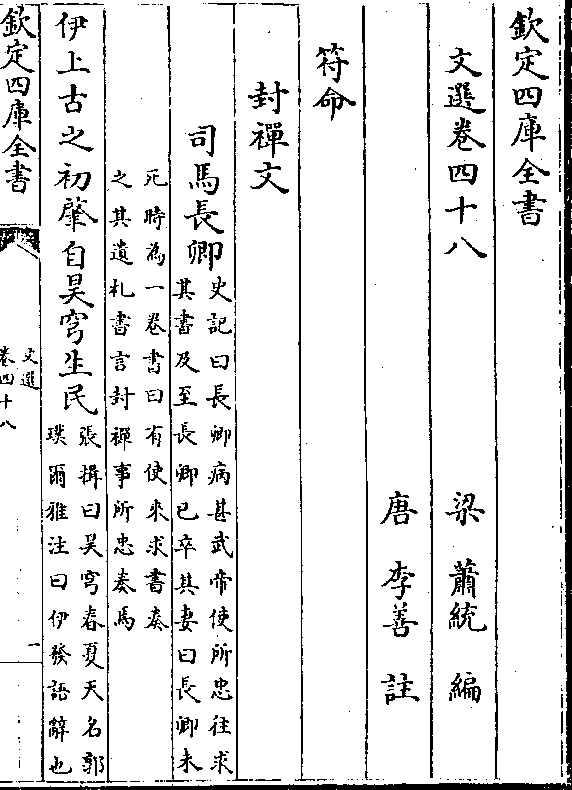 欽定四庫全書
文選卷四十八 梁 蕭統 編
唐 李善 註
符命
封禪文
司馬長卿
史記曰長卿病甚武帝使所忠往求
其書及至長卿已卒其妻曰長卿未
死時為一卷書曰有使來求書奏
之其遺札書言封禪事所忠奏焉
伊上古之初肇自昊穹生民
張揖曰昊穹春夏天名郭
璞爾雅注曰伊發語辭也
欽定四庫全書
文選
卷四十八
一